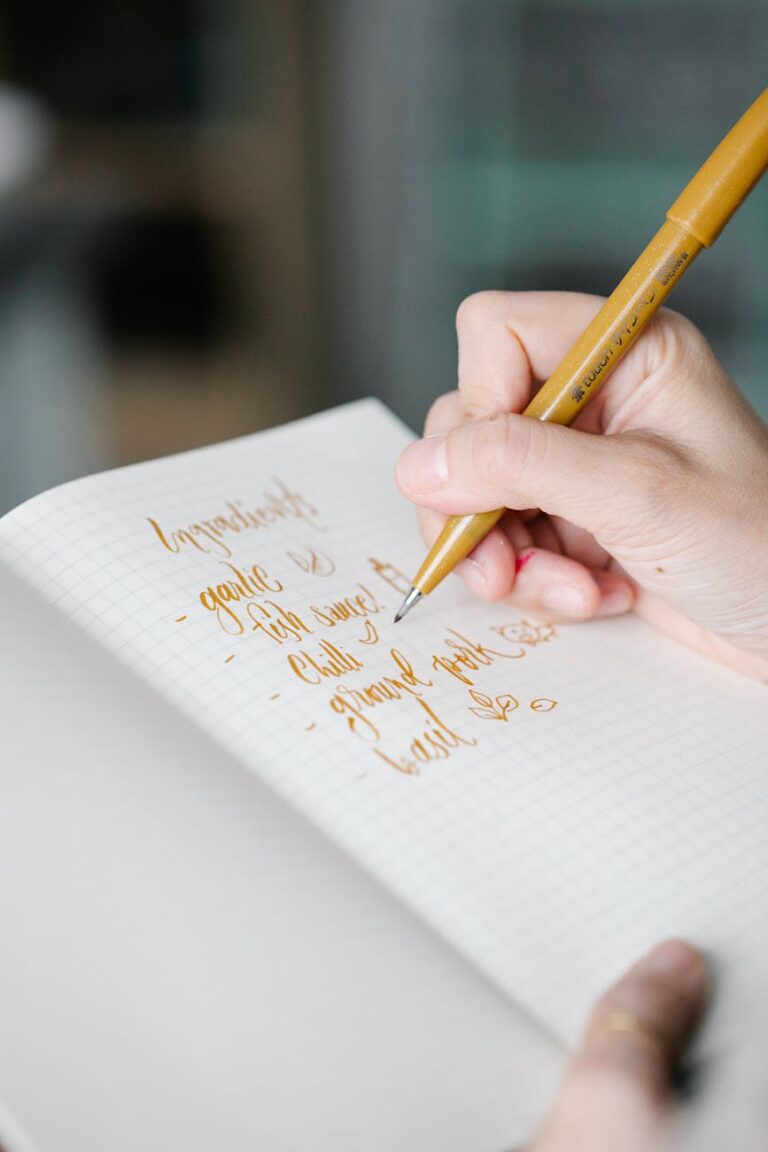 Ingradients
- garlic
- fish sauce!
- Chilli
- ground pork
- basil
筆touchサインペン